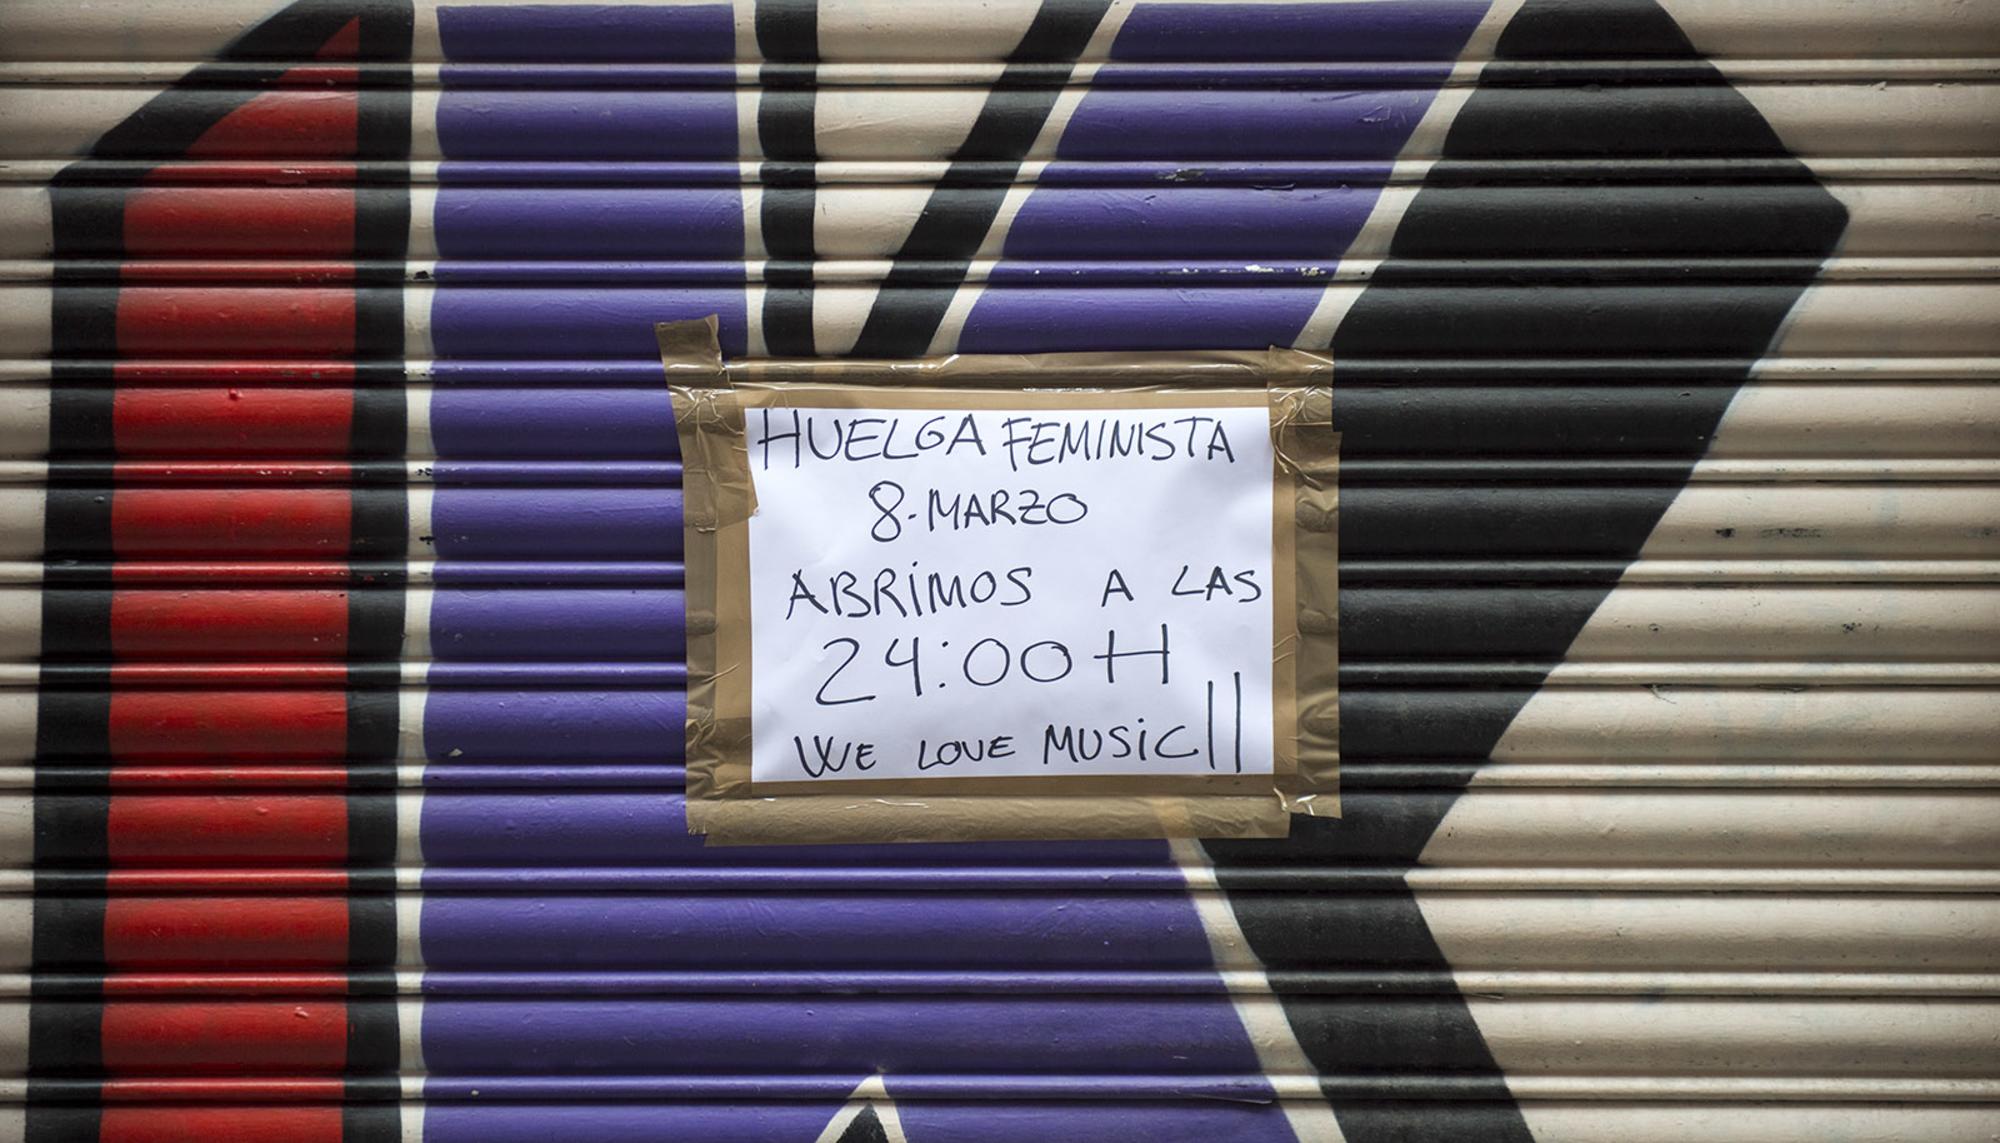 HUELGA FEMINISTA
8-MARZO
ABRIMOS A LAS
24:00 H
WE LOVE MUSIC!!